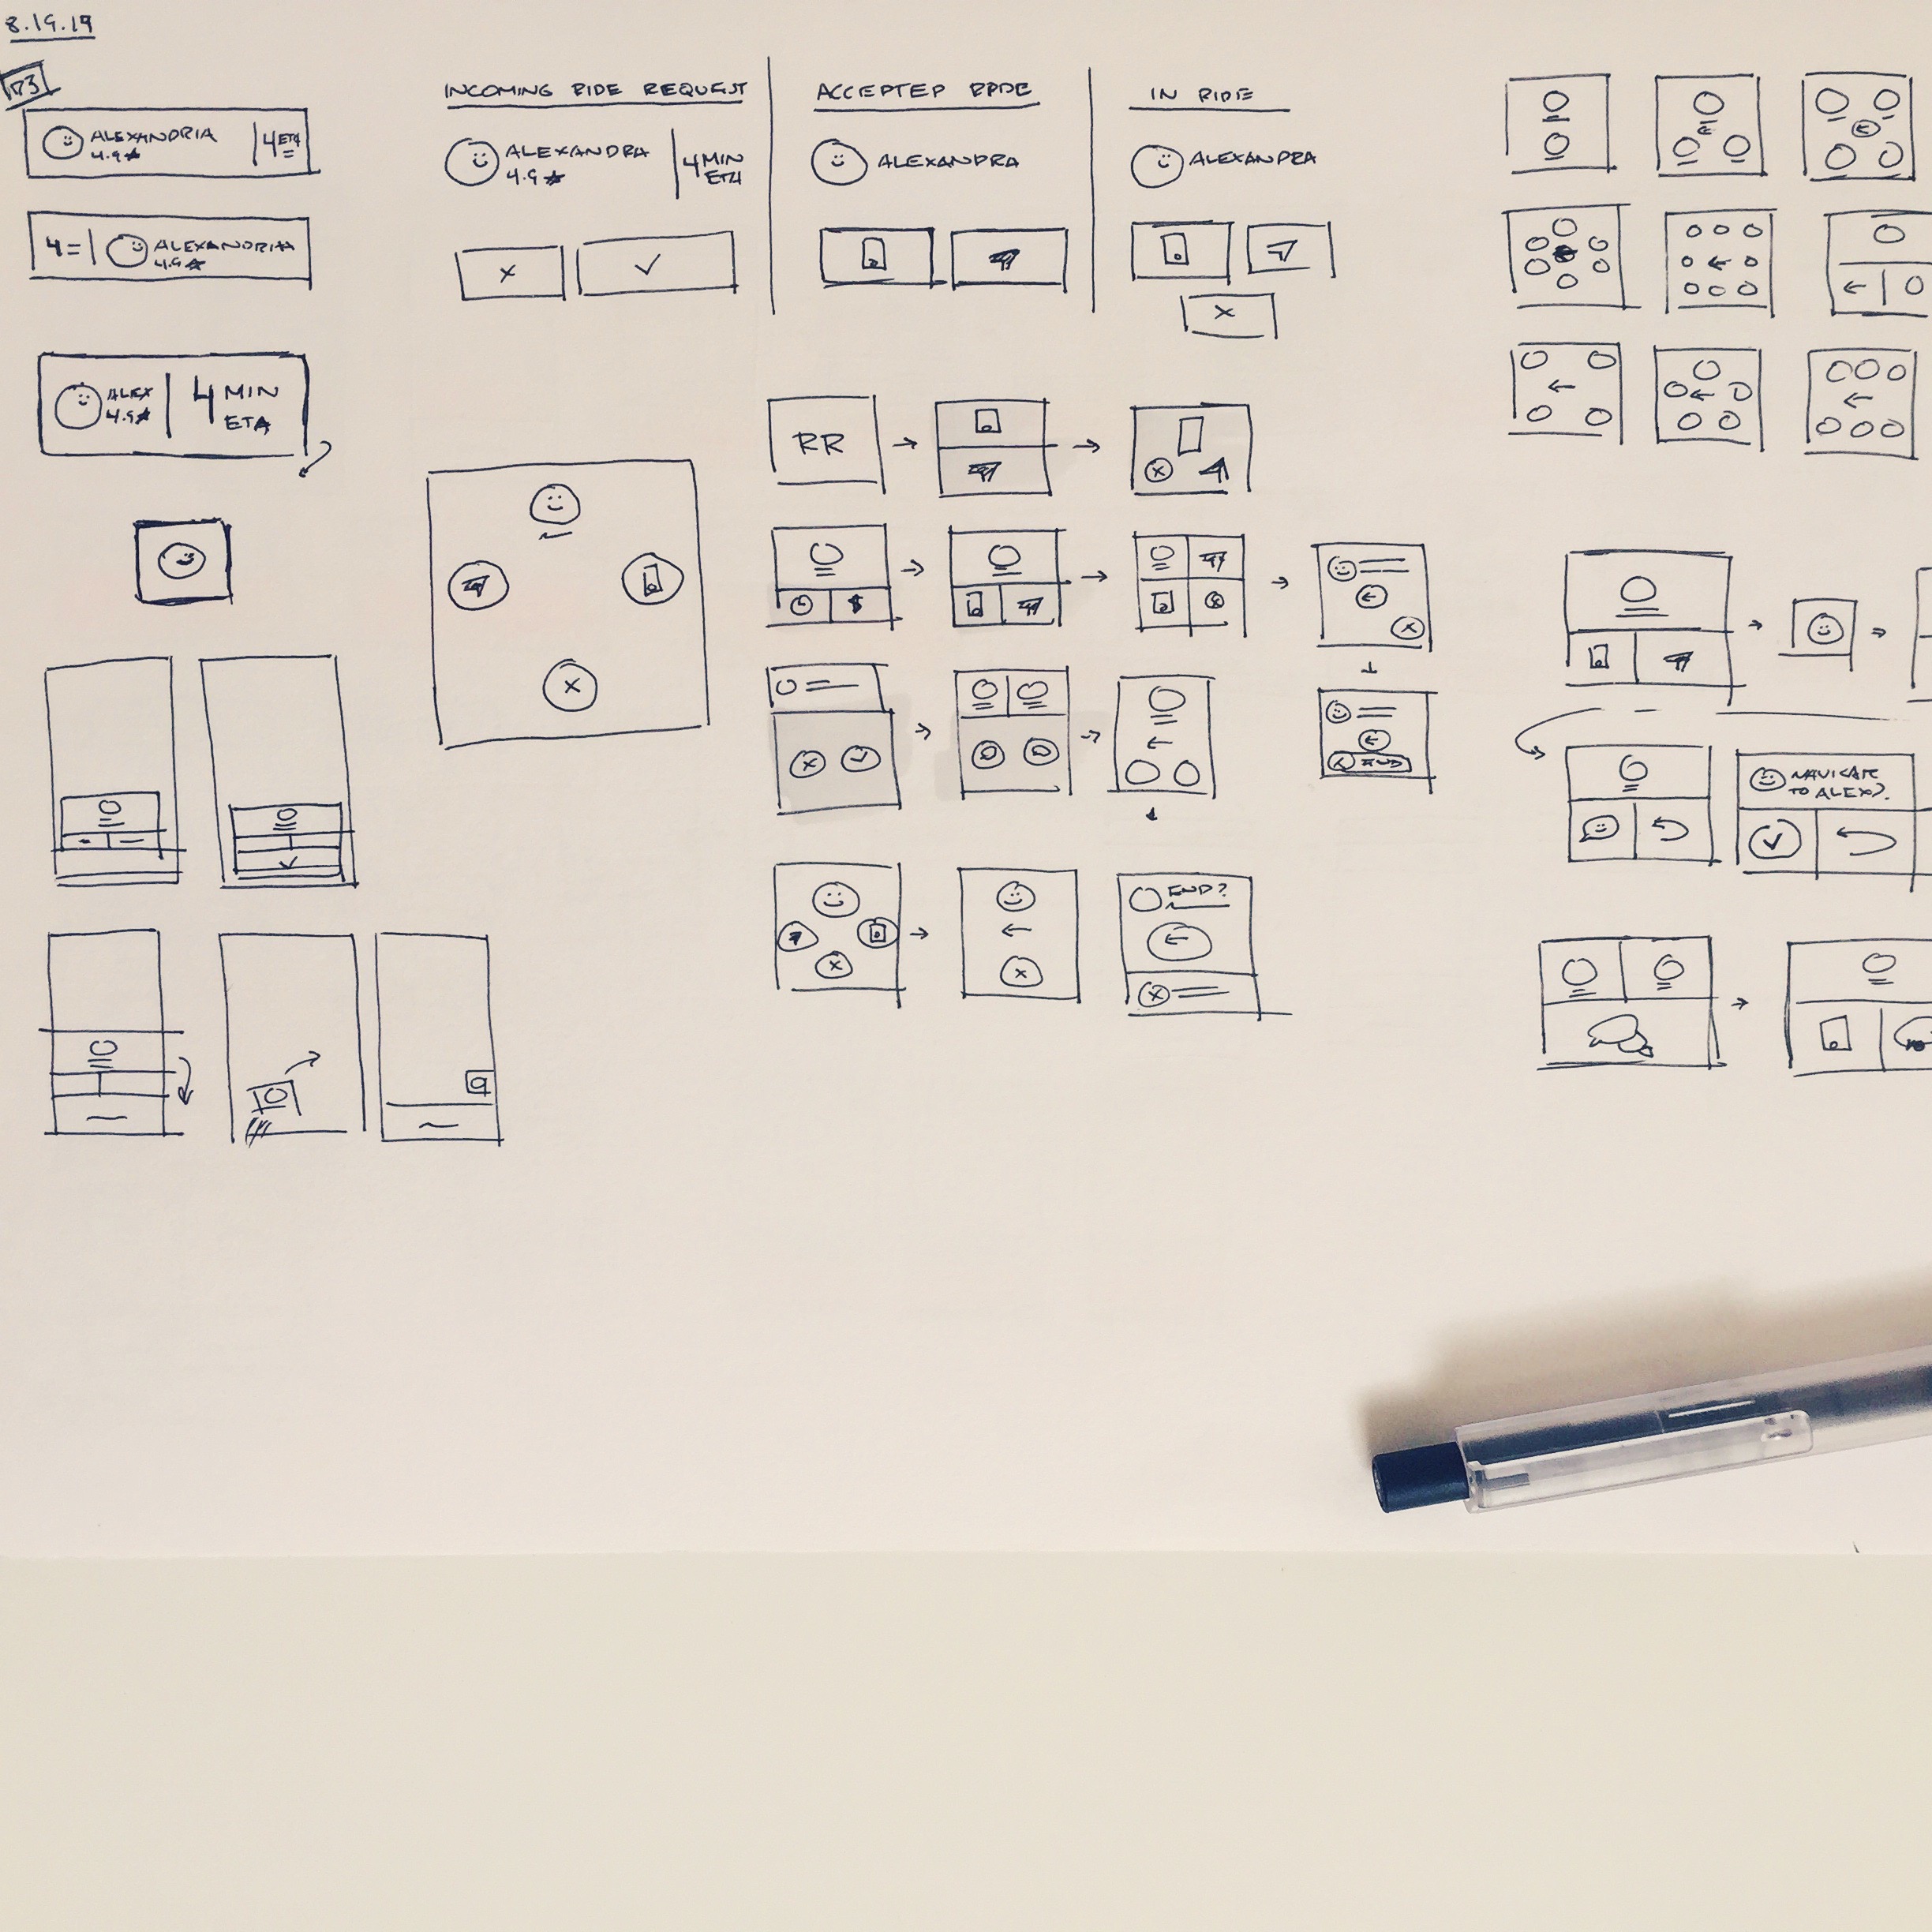 8.19.19
R3
ALEXANDRIA
4.9★
4 ETA
4
ALEXANDRIA
4.9★
ALEX
4.9★
4 MIN
ETA
INCOMING RIDE REQUEST
ALEXANDRA
4.9★
4 MIN
ETA
ACCEPTED RIDE
ALEXANDRA
IN RIDE
ALEXANDRA
RR
$
END
END?
NAVIGATE
TO ALEX?